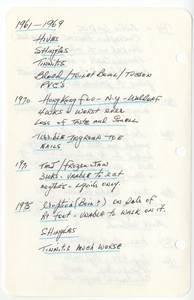 1961-1969
Hives
Shingles
Tinnitus
Blood / Toilet Bowl / Tucson
PVC's
1970 Hong Kong Flu - N.Y - Waldorf
4 wks - worst ever
Loss of Taste and Smell
Terrible ingrown toe
nails
1971 TMJ / Frozen Jaw
3 wks - unable to eat
- liquids only.
1975 on sole of
Rt foot - unable to walk on it.
Shingles
Tinnitus much worse